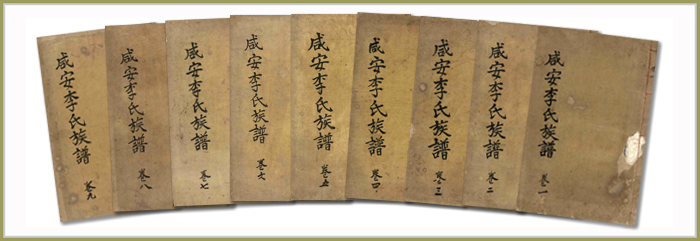 咸安李氏族譜 卷一
咸安李氏族譜 卷二
咸安李氏族譜 卷三
咸安李氏族譜 卷四
咸安李氏族譜 卷五
咸安李氏族譜 卷六
咸安李氏族譜 卷七
咸安李氏族譜 卷八
咸安李氏族譜 卷九